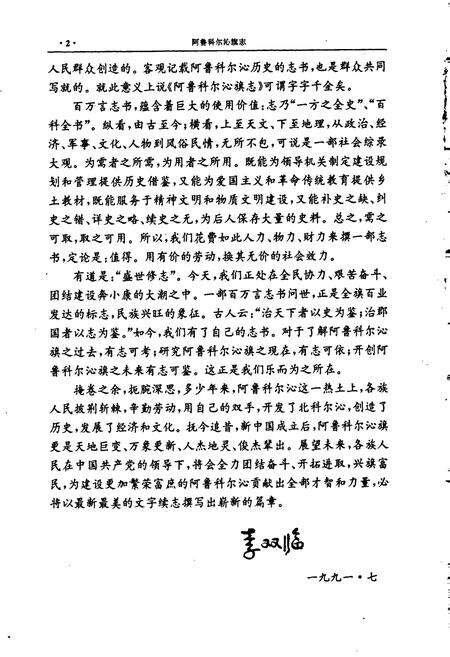 ·2·
阿鲁科尔沁旗志
人民群众创造的。客观记载阿鲁科尔沁历史的志书,也是群众共同
写就的。就此意义上说《阿鲁科尔沁旗志》可谓字字千金矣。
百万言志书,蕴含着巨大的使用价值;志乃“一方之全史”、“百
科全书”。纵看,由古至今;横看,上至天文、下至地理,从政治、经
济、军事、文化、人物到风俗民情,无所不包,可说是一部社会综录
大观。为需者之所需,为用者之所用。既能为领导机关制定建设规
划和管理提供历史借鉴,又能为爱国主义和革命传统教育提供乡
土教材,既能服务于精神文明和物质文明建设,又能补史之缺、纠
史之错、详史之略、续史之无,为后人保存大量的史料。总之,需之
可取,取之可用。所以,我们花费如此人力、物力、财力来撰一部志
书,定论是:值得。用有价的劳动,换其无价的社会效力。
有道是:“盛世修志”。今天,我们正处在全民协力、艰苦奋斗、
团结建设奔小康的大潮之中。一部百万言志书问世,正是全旗百业
发达的标志,民族兴旺的象征。古人云:“治天下者以史为鉴;治郡
国者以志为鉴。”如今,我们有了自己的志书。对于了解阿鲁科尔沁
旗之过去,有志可考;研究阿鲁科尔沁旗之现在,有志可依;开创阿
鲁科尔沁旗之未来有志可鉴。这正是我们乐而为之所在。
掩卷之余,扼腕深思,多少年来,阿鲁科尔沁这一热土上,各族
人民披荆斩棘,辛勤劳动,用自己的双手,开发了北科尔沁,创造了
历史,发展了经济和文化。抚今追昔,新中国成立后,阿鲁科尔沁旗
更是天地巨变、万象更新、人杰地灵、俊杰辈出。展望未来,各族人
民在中国共产党的领导下,将会全力团结奋斗、开拓进取,兴旗富
民,为建设更加繁荣富庶的阿鲁科尔沁贡献出全部才智和力量,必
将以最新最美的文字续志撰写出崭新的篇章。
李双临
一九九一·七